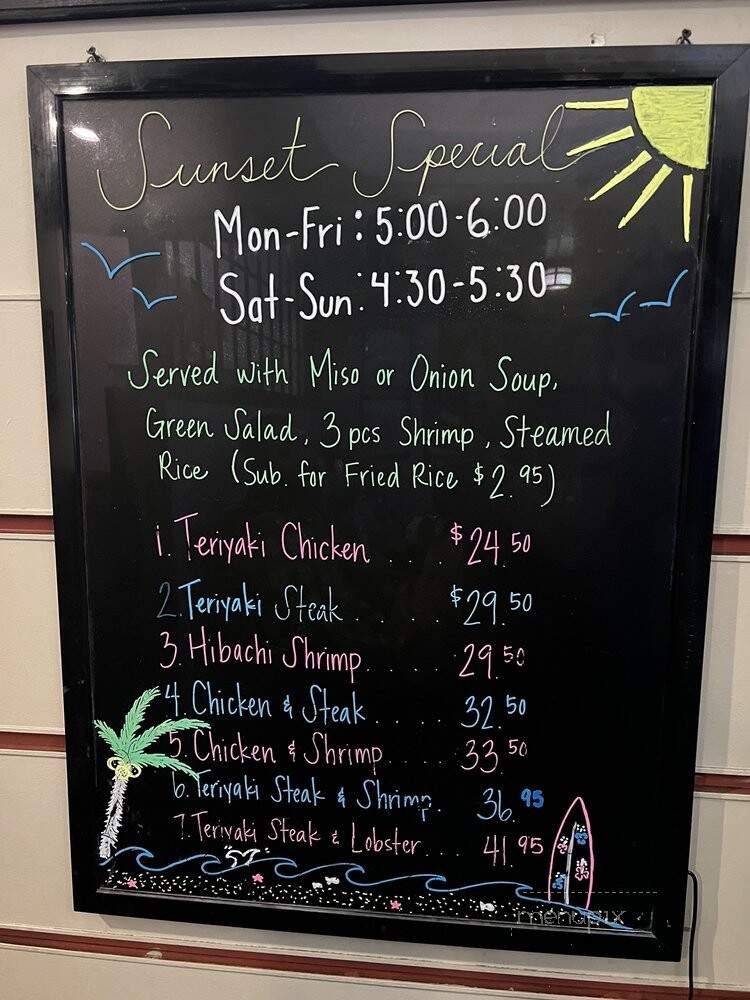 Sunset Special
Mon-Fri: 5:00-6:00
Sat-Sun: 4:30-5:30
Served with Miso or Onion Soup,
Green Salad, 3 pcs Shrimp, Steamed
Rice (Sub. for Fried Rice $2.95)
1. Teriyaki Chicken . . . $24.50
2. Teriyaki Steak . . . . . $29.50
3. Hibachi Shrimp. . . . . 29.50
4. Chicken & Steak . . . . 32.50
5. Chicken & Shrimp . . . . 33.50
6. Teriyaki Steak & Shrimp. 36.95
7. Teriyaki Steak & Lobster . . . 41.95
menupix